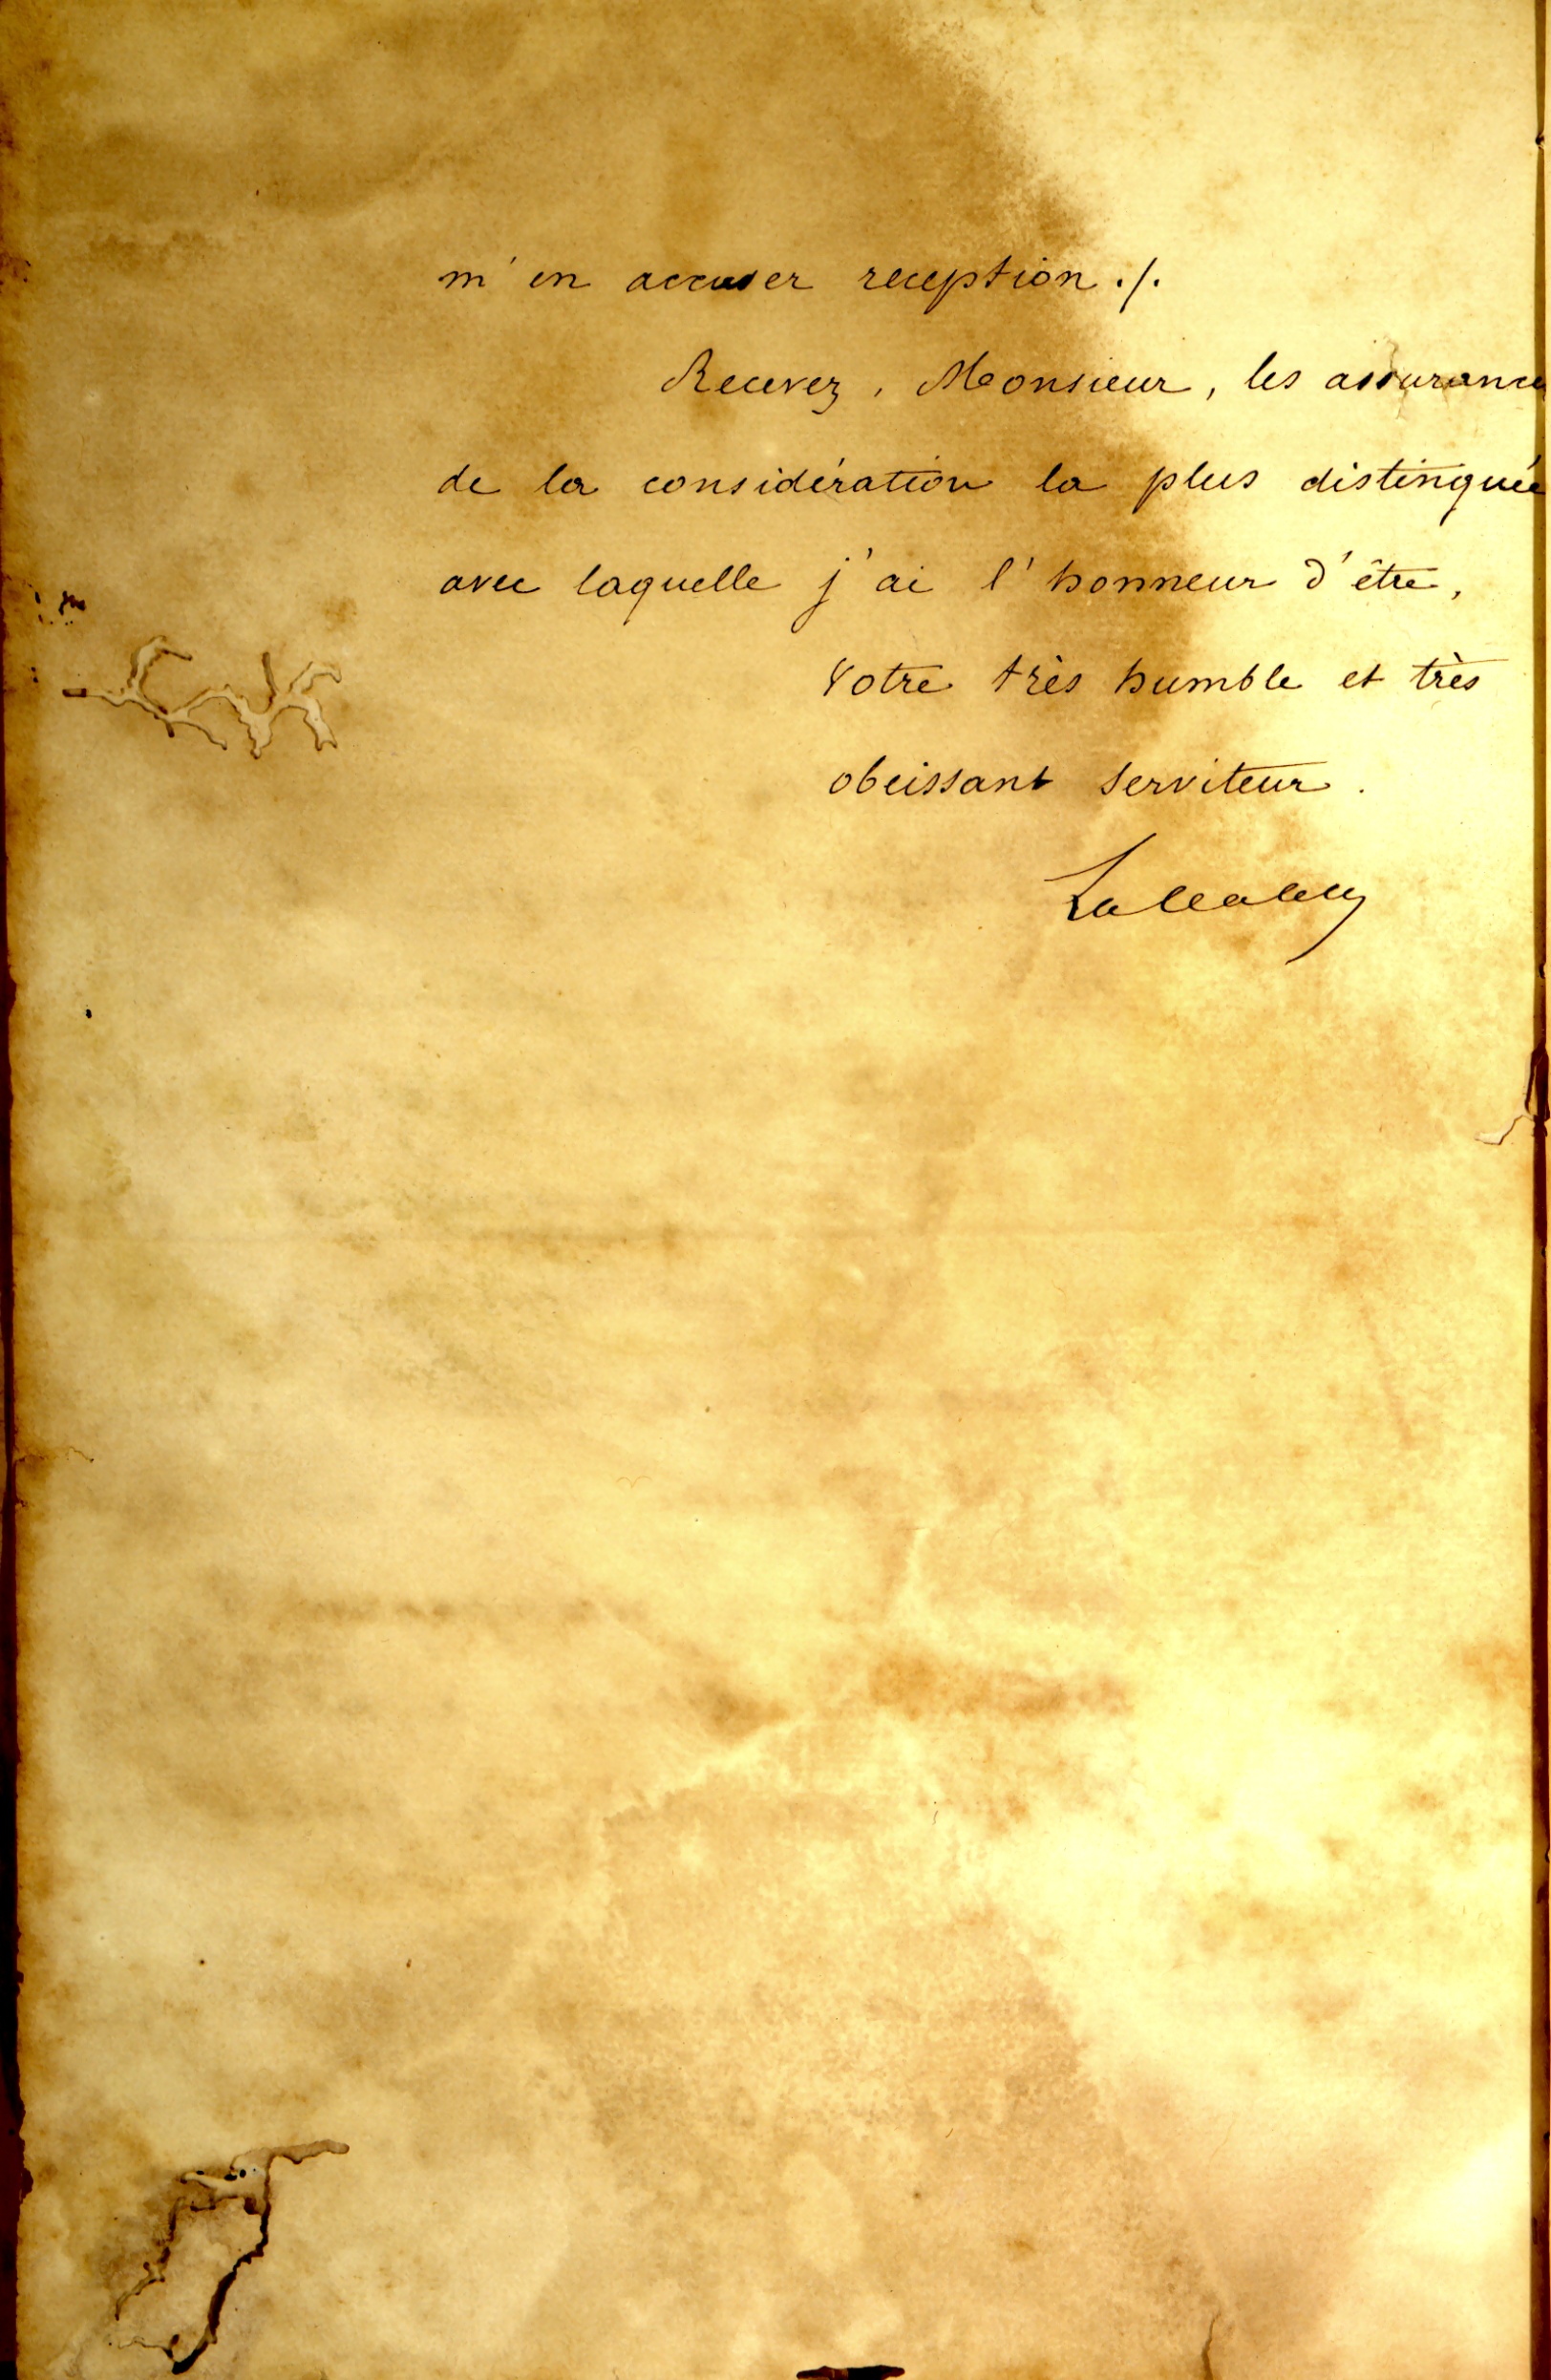 m'en accuser reception ./.
Recevez, Monsieur, les assurances
de la considération la plus distinguée
avec laquelle j'ai l'honneur d'être,
Votre très humble et très
obeissant serviteur.